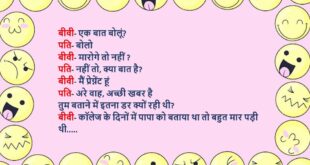 बीवी- एक बात बोलूं?
पति- बोलो
बीवी- मारोगे तो नहीं ?
पति- नहीं तो, क्या बात है?
बीवी- मैं प्रेग्नेंट हूं
पति- अरे वाह, अच्छी खबर है
तुम बताने में इतना डर क्यों रही थी?
बीवी- कॉलेज के दिनों में पापा को बताया था तो बहुत मार पड़ी
थी.....